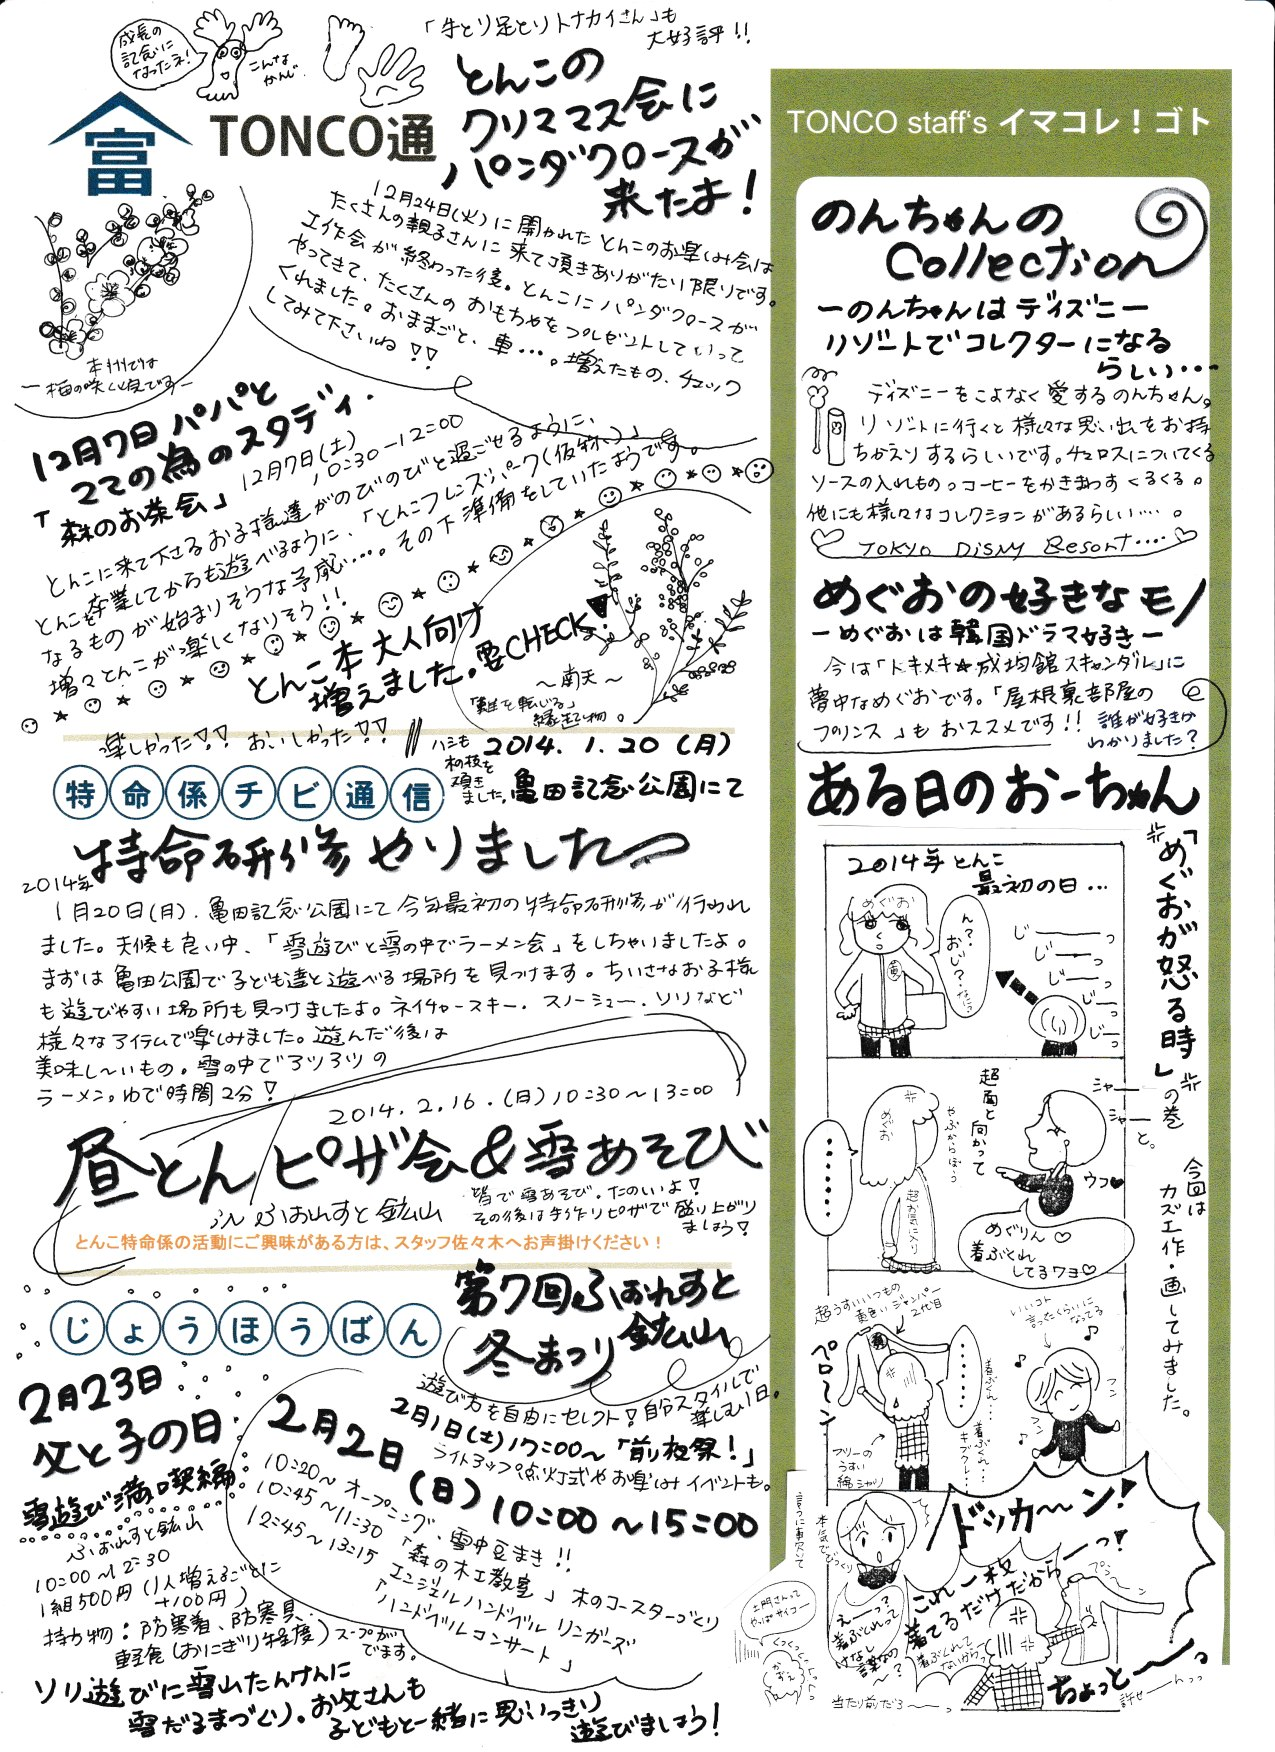 成長の
記念に
なったネ!
こんな
かんじ
「手とり足とりトナカイさん」も
大好評!!
富
TONCO通
とんこの
クリスマス会に
パンダクロースが
来たよ!
12月24日(火)に開かれたとんこのお楽しみ会は
たくさんの親子さんに来て頂きありがたい限りです。
工作会が終わった後。とんこにパンダクロースが
やってきて、たくさんのおもちゃをプレゼントしていって
くれました。おままごと、車…。増えたもの、チェック
してみて下さいね!!
本州では
ー梅の咲く頃ですー
12月7日パパと
ママの為のスタディ.
「森のお茶会」
12月7日(土)
10:30ー12:00
とんこに来て下さるお子様達がのびのびと過ごせるように、
とんこを卒業してからも遊べるように、「とんこフレンズパーク(仮称)」
なるものが始まりそうな予感…。その下準備をしていたようです。
増々とんこが楽しくなりそう!!
とんこ本 大人向け
増えました。要CHECK!
〜南天〜
「難を転じる」
縁起物。
楽しかった!! おいしかった!!
ハシも
木の枝を
頂き
ました。
2014.1.20(月)
亀田記念公園にて
特命係チビ通信
特命研修やりました
2014年
1月20日(月).亀田記念公園にて今年最初の特命研修が行われ
ました。天候も良い中、「雪遊びと雪の中でラーメン会」をしちゃいましたよ。
まずは亀田公園で子ども達と遊べる場所を見つけます。ちいさなお子様
も遊びやすい場所も見つけましたよ。ネイチャースキー.スノーシュー.ソリなど
様々なアイテムで楽しみました。遊んだ後は
美味し〜いもの。雪の中でアツアツの
ラーメン。ゆで時間2分!
2014.2.16.(日)10:30〜13:00
昼とんピザ会&雪あそび
in ふぉれすと鉱山
皆で雪あそび。たのしいよ!
その後は手作りピザで盛り上がり
ましょう!
とんこ特命係の活動にご興味がある方は、スタッフ佐々木へお声掛けください!
じょうほうばん
第7回ふぉれすと
鉱山
冬まつり
遊び方を自由にセレクト!自分スタイルで
楽しむ1日。
2月1日(土)17:00〜「前夜祭!」
ライトアップ点灯式やお楽しみイベントも。
2月2日(日)10:00〜15:00
10:20〜オープニング、雪中豆まき!!
10:45〜11:30「森の木工教室」木のコースターづくり
12:45〜13:15 エンジェルハンドベルリンガーズ
「ハンドベルコンサート」
2月23日
父と子の日
雪遊び満喫編
ふぉれすと鉱山
10:00〜12:30
1組500円(1人増えるごとに
+100円)
持ち物:防寒着、防寒具、
軽食(おにぎり程度)スープが
でます。
ソリ遊びに雪山たんけんに
雪だるまづくり。お父さんも
子どもと一緒に思いっきり
遊びましょう!
TONCO staff's イマコレ!ゴト
のんちゃんの
Collection
ーのんちゃんはディズニー
リゾートでコレクターになる
らしい…
ディズニーをこよなく愛するのんちゃん。
リゾートに行くと様々な思い出をお持
ちかえりするらしいです。チュロスについてくる
ソースの入れもの。コーヒーをかきまわすくるくる。
他にも様々なコレクションがあるらしい…。
TOKYO DISNY Resort....
めぐおの好きなモノ
ーめぐおは韓国ドラマ好きー
今は「トキメキ☆成均館スキャンダル」に
夢中なめぐおです。「屋根裏部屋の
プリンス」もおススメです!!
誰が好きか
わかりました?
ある日のおーちゃん
「めぐおが怒る時」の巻
今回は
カズ工作・画してみました。
2014年とんこ
最初の日…
めぐお
ん?.
おい?.
じーーっ
じーーっ
じーーっ
じーっ
じーっ
超面と向かって
やぶからぼうっ
めぐお
超お気に入り
シャーー
シャーーと。
ウフ♥
めぐりん♡
着ぶくれ
してるワヨ♡
超うすいいつもの
黄色いジャンパー
2代目
ペローン
フリーの
うすい
綿シャツ
着ぶくれ…
着ぶくれ…
いいコト
言ったくらいに
なってる
フン
フン
ドッカーーン!
言うに事欠いて
本気でびっくり
えーっ?
着ぶくれって
けなし
言葉なの
〜?
これ一枚
着てるだけだからーっ!
着ぶくれて
ないからっ
プンーー
ちょっとーーっ
土門さんって
やっぱサイコー
くっくっくっ
かずえ
当たり前だろーーっ
許せーーんっっ